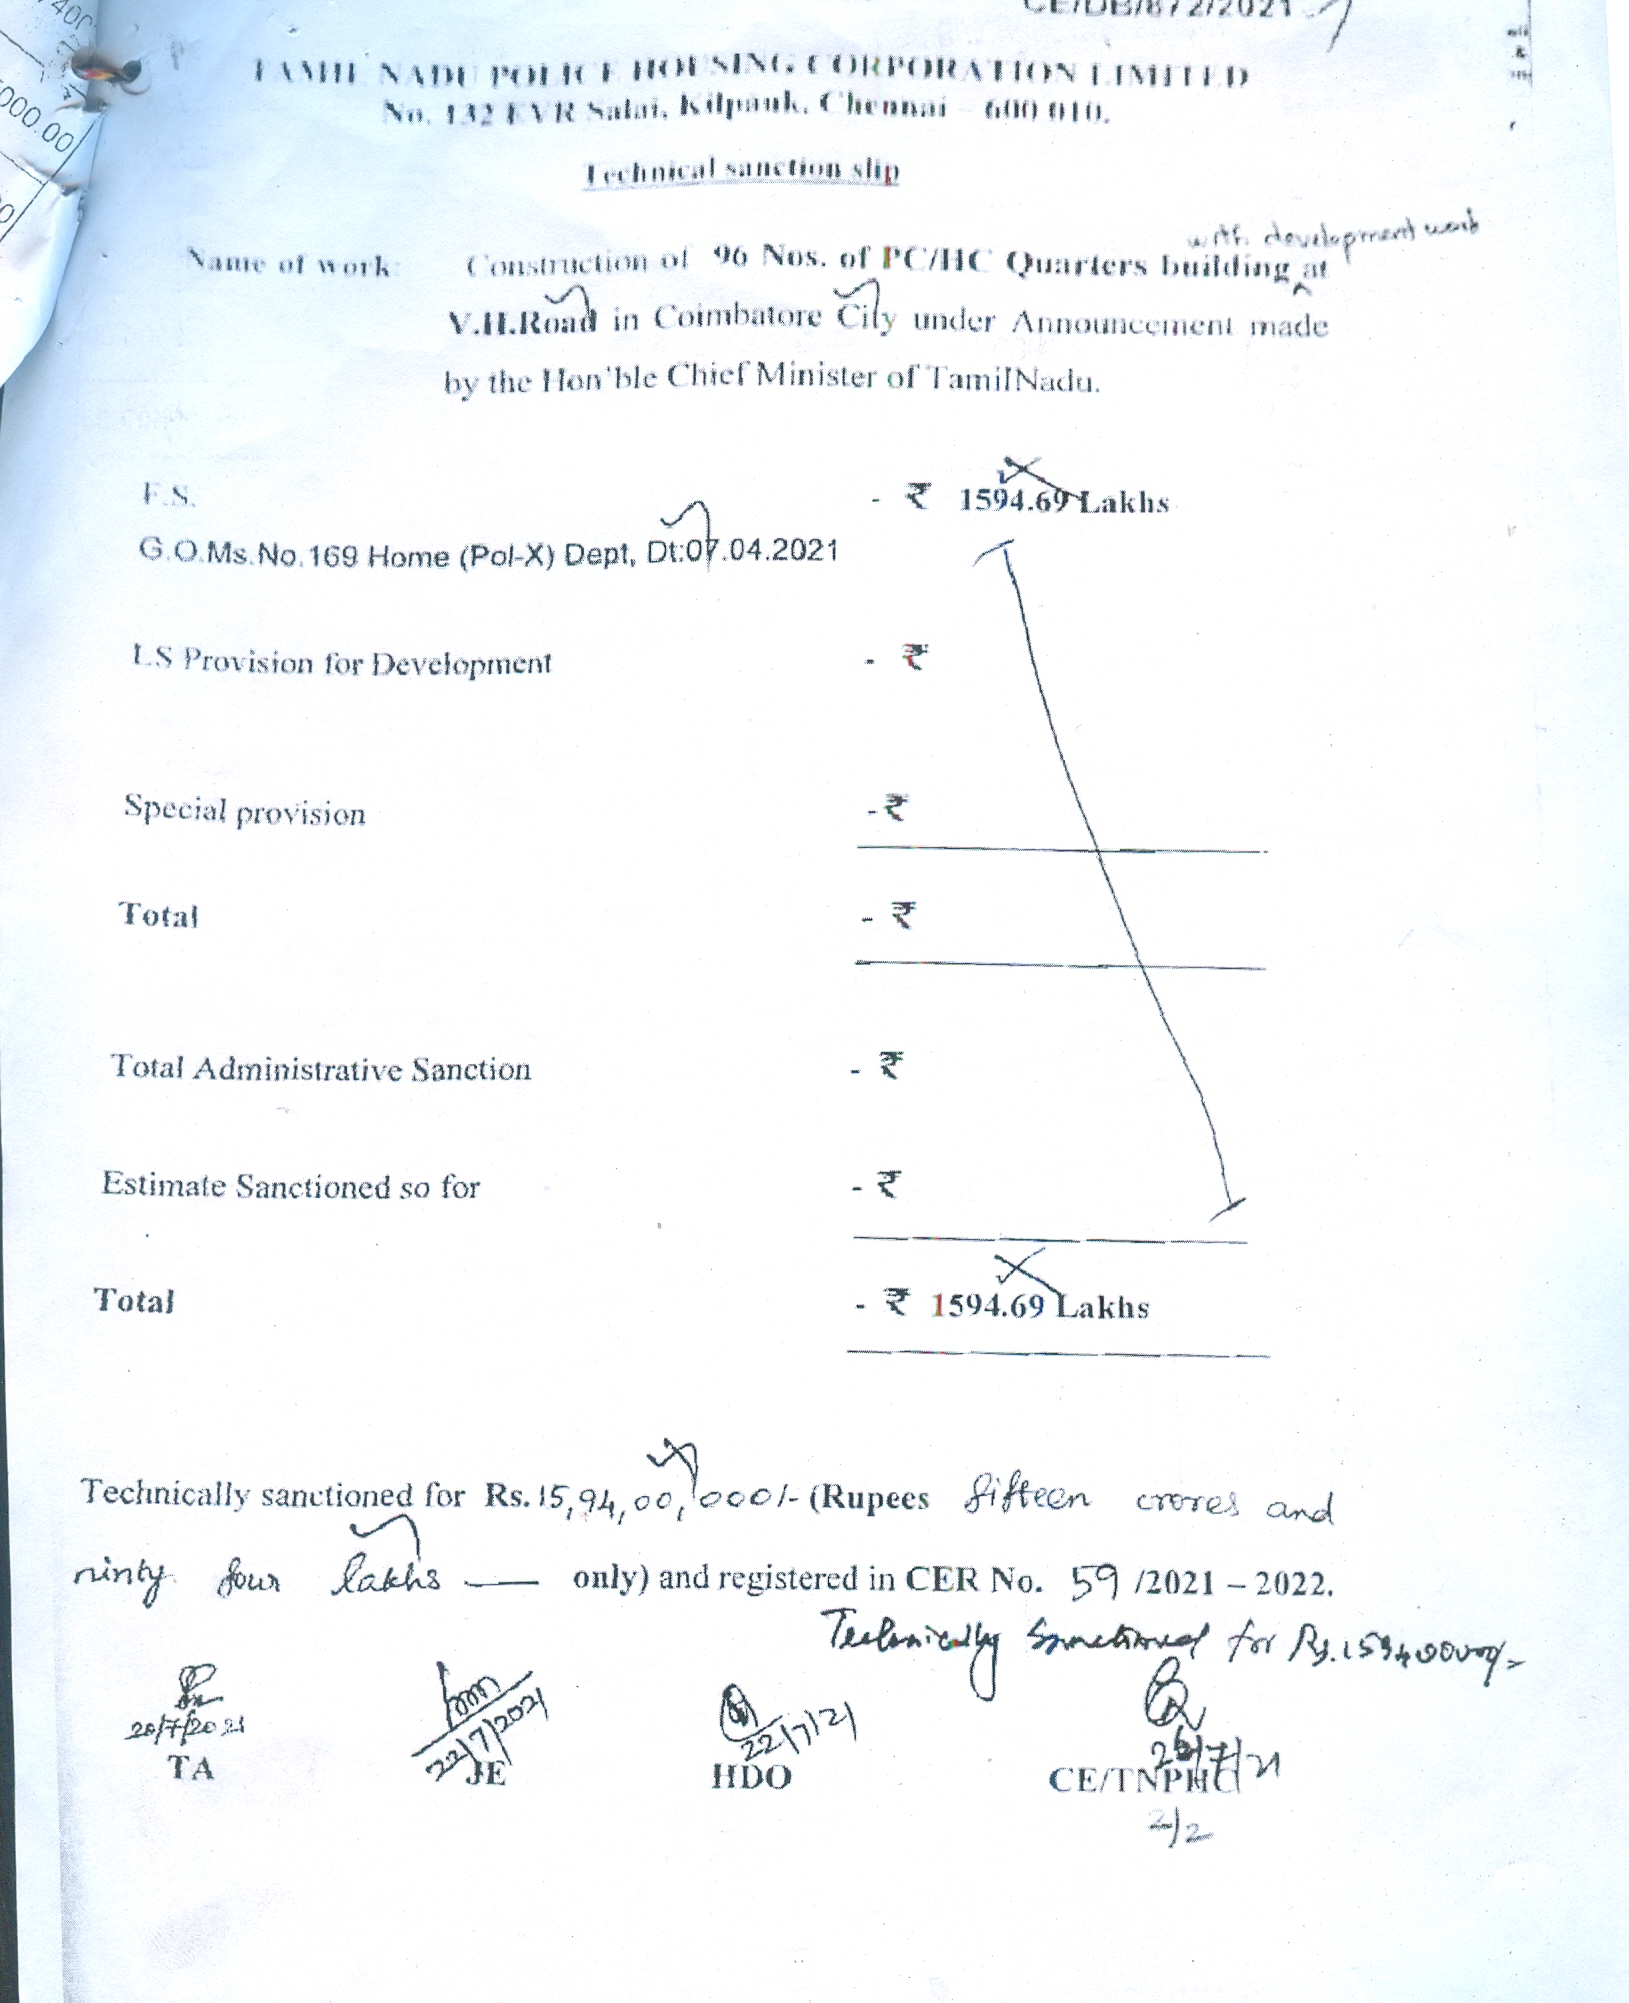 400
5000.00
CE/DB/872/2021
TAMIL NADU POLICE HOUSING CORPORATION LIMITED
No. 132 EVR Salai, Kilpauk, Chennai - 600 010.
Technical sanction slip
with development work
Name of work: Construction of 96 Nos. of PC/HC Quarters building at
V.H.Road in Coimbatore City under Announcement made
by the Hon'ble Chief Minister of TamilNadu.
F.S. - ₹ 1594.69 Lakhs
G.O.Ms.No.169 Home (Pol-X) Dept, Dt:07.04.2021
LS Provision for Development - ₹
Special provision - ₹
Total - ₹
Total Administrative Sanction - ₹
Estimate Sanctioned so for - ₹
Total - ₹ 1594.69 Lakhs
Technically sanctioned for Rs.15,94,00,000/- (Rupees fifteen crores and
ninty four lakhs — only) and registered in CER No. 59 /2021 – 2022.
Technically Sanctioned for Rs.159400000/-
20/7/2021 22/7/2021 22/7/21 26/7/21
TA JE HDO CE/TNPHC
2/2